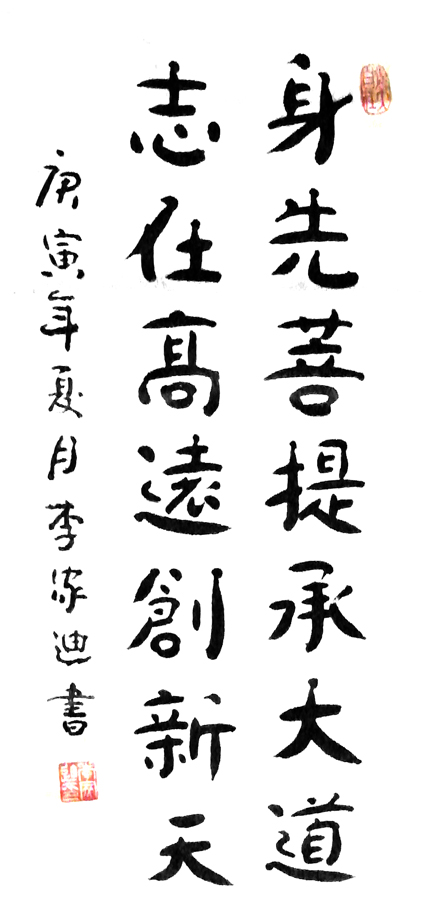 身先菩提承大道
志仕高遠創新天
庚寅年夏月李家迪書